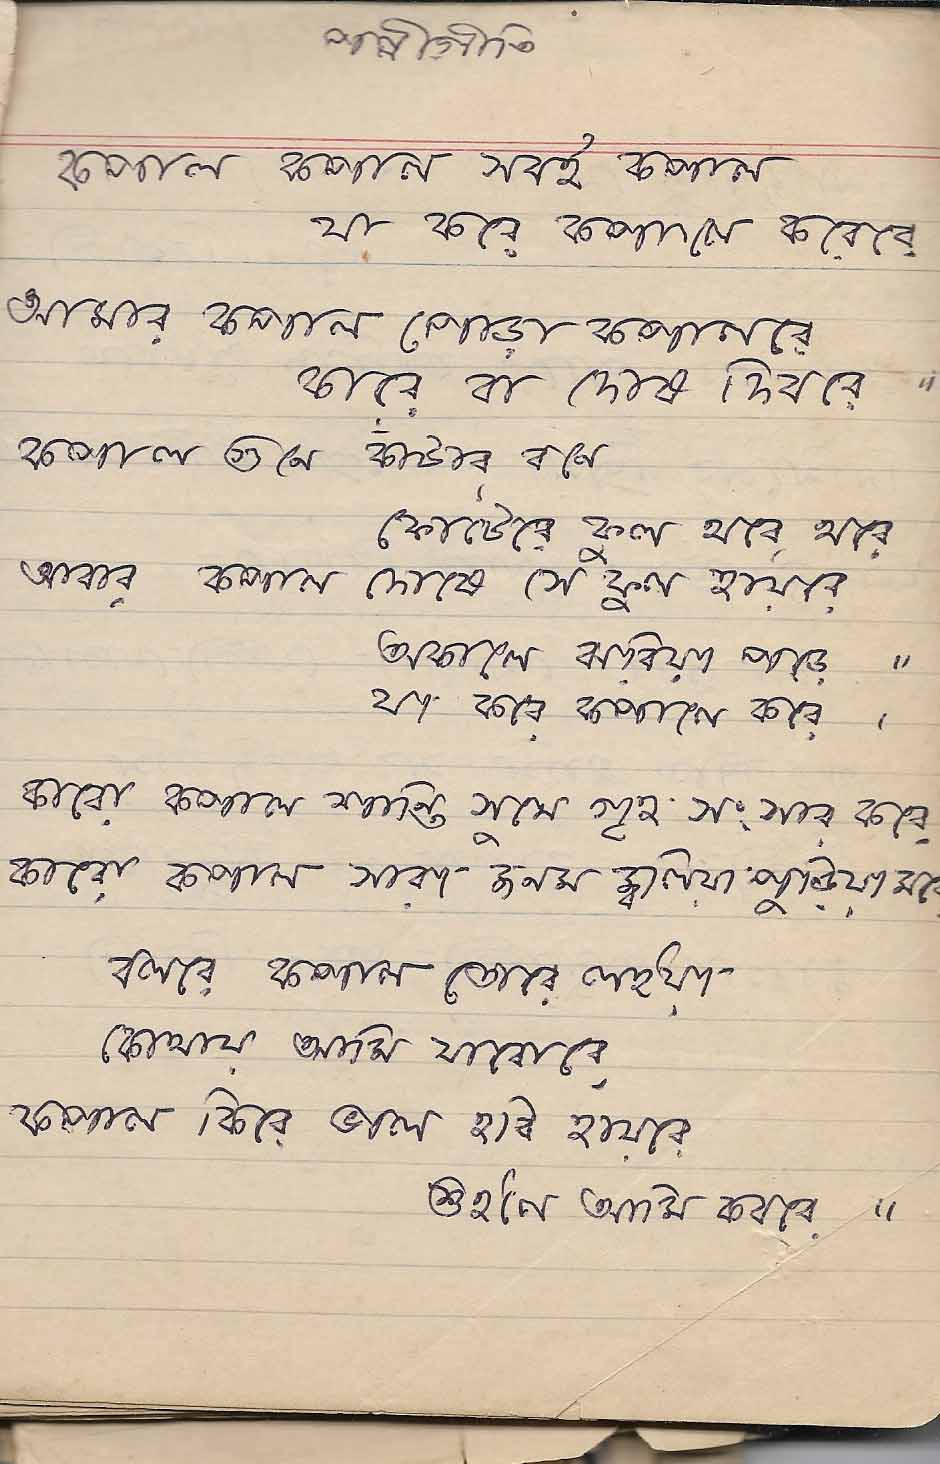 পল্লীগীতি
কপাল কপাল সবই কপাল
যা করে কপালে করেরে
আমার কপাল পোড়া কপালরে
কারে বা দোষ দিবরে "
কপাল গুনে কাঁটার বনে
ফোটেরে ফুল থরে থরে
আবার কপাল দোষে সে ফুল হায়রে
অকালে ঝরিয়া পড়ে "
যা করে কপালে করে ।
কারো কপাল শান্তি সুখে গৃহ সংসার করে
কারো কপাল সারা জনম জ্বলিয়া পুড়িয়া মরে
বলরে কপাল তোরে লইয়া
কোথায় আমি যাবোরে
কপাল কিরে ভাল হবি হায়রে
শুইলে আমি কবরে "